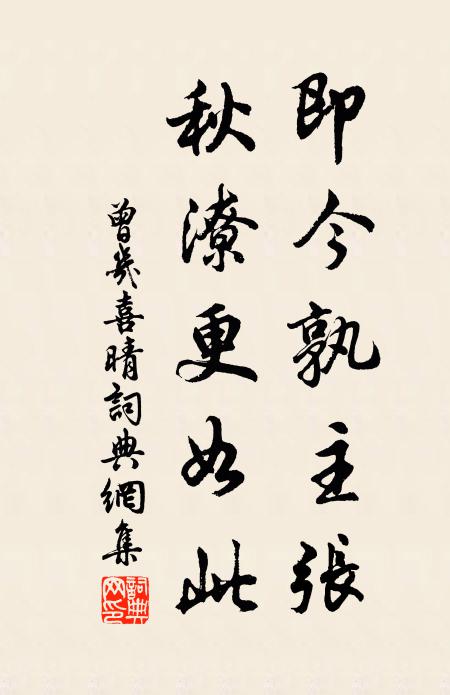 即今孰主張
秋潦更如此
曾幾喜晴詞典網集